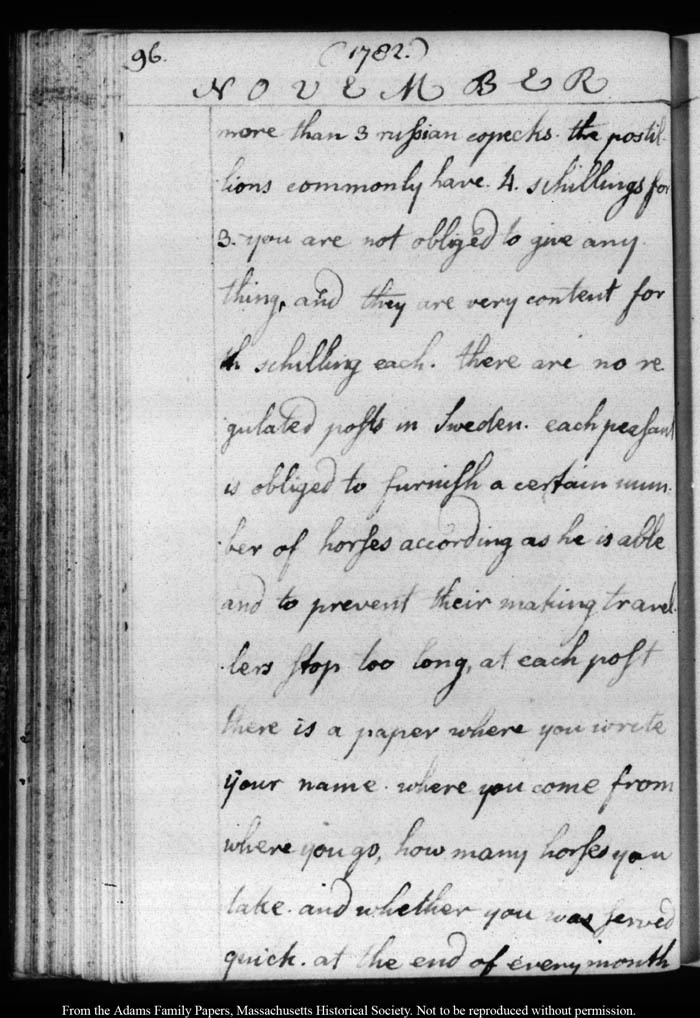 96.
(1782.)
NOVEMBER
more than 3 russian copecks. the postil-
lions commonly have. 4. schillings for
3. you are not obliged to give any
thing, and they are very content for
schilling each. there are no re
gulated posts in Sweden. each peasant
is obliged to furnish a certain num-
ber of horses according as he is able
and to prevent their making travel-
lers stop too long, at each post
there is a paper where you write
your name. where you come from
where you go, how many horses you
take. and whether you was served
quick. at the end of every month
From the Adams Family Papers, Massachusetts Historical Society. Not to be reproduced without permission.